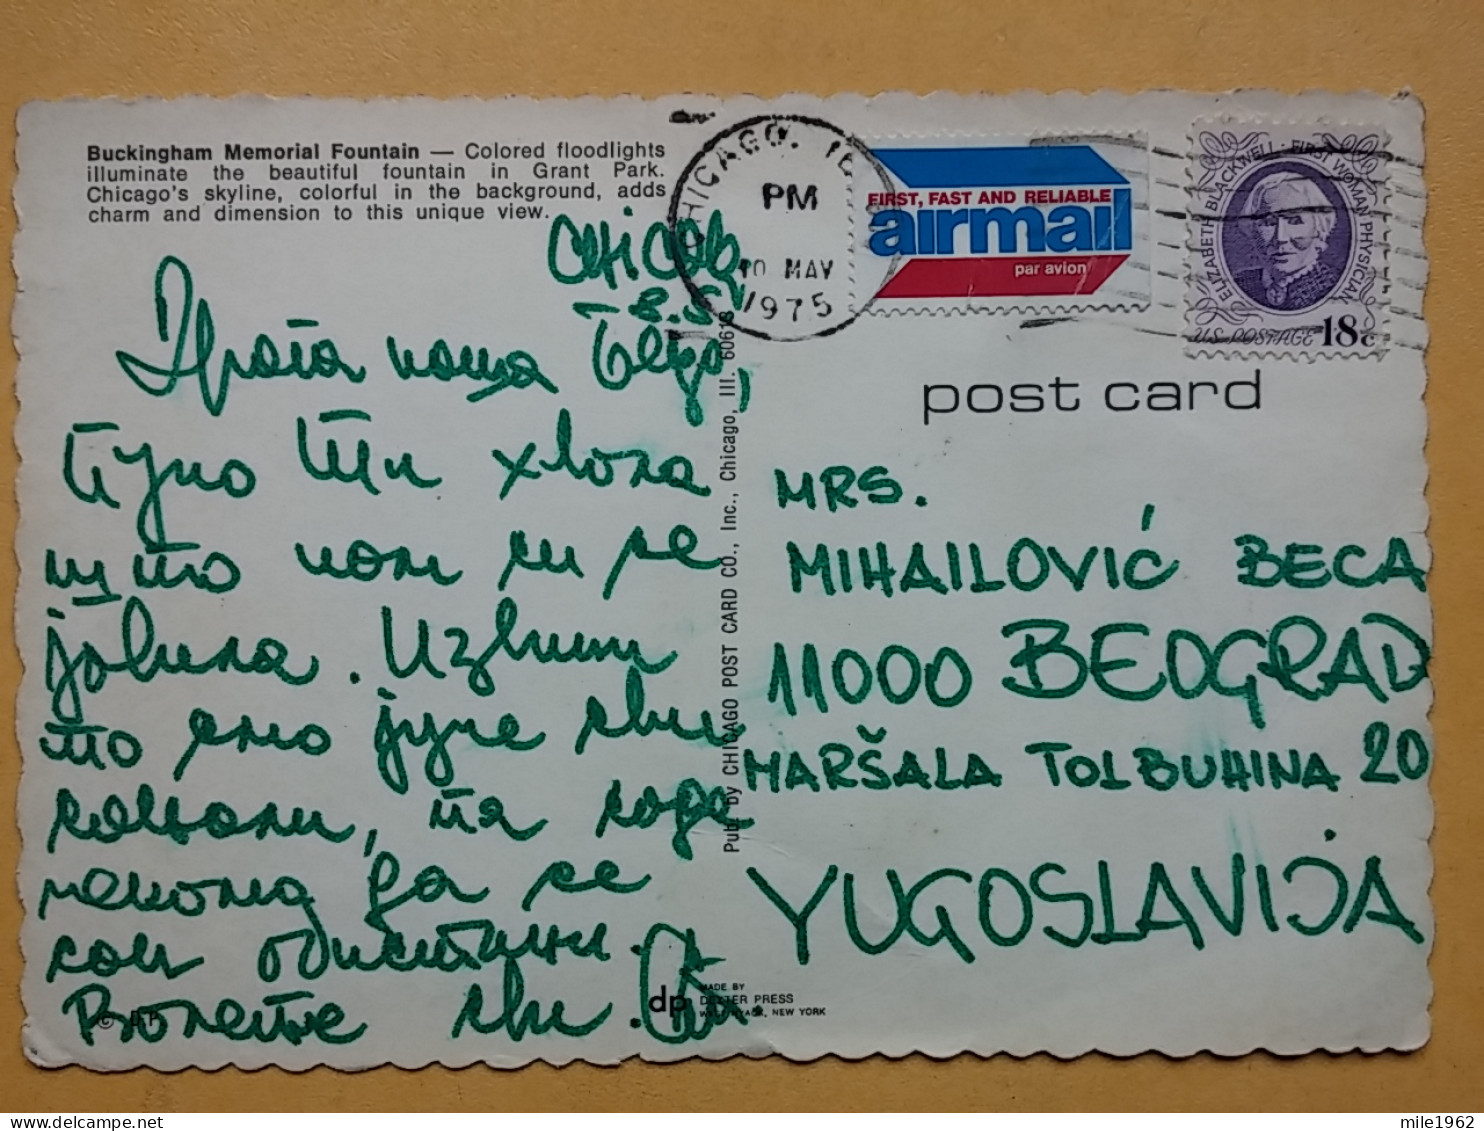 Buckingham Memorial Fountain — Colored floodlights
illuminate the beautiful fountain in Grant Park.
Chicago's skyline, colorful in the background, adds
charm and dimension to this unique view.
CHICAGO. IL
PM
10 MAY
1975
FIRST, FAST AND RELIABLE
airmail
par avion
ELIZABETH BLACKWELL · FIRST WOMAN PHYSICIAN
US POSTAGE 18c
post card
8.5
Драга наша Бецо,
Пуно Ти хвала
што нам си се
јавила. Узбуђени
смо јуче сви
, па сада
чекамо да се
сви
Волете сви.
Pub. by CHICAGO POST CARD CO., Inc., Chicago, Ill. 60613
MRS.
MIHAILOVIĆ BECA
11000 BEOGRAD
MARŠALA TOLBUHINA 20
YUGOSLAVIJA
© D.P.
dp
MADE BY
DEXTER PRESS
WEST NYACK, NEW YORK
mile1962